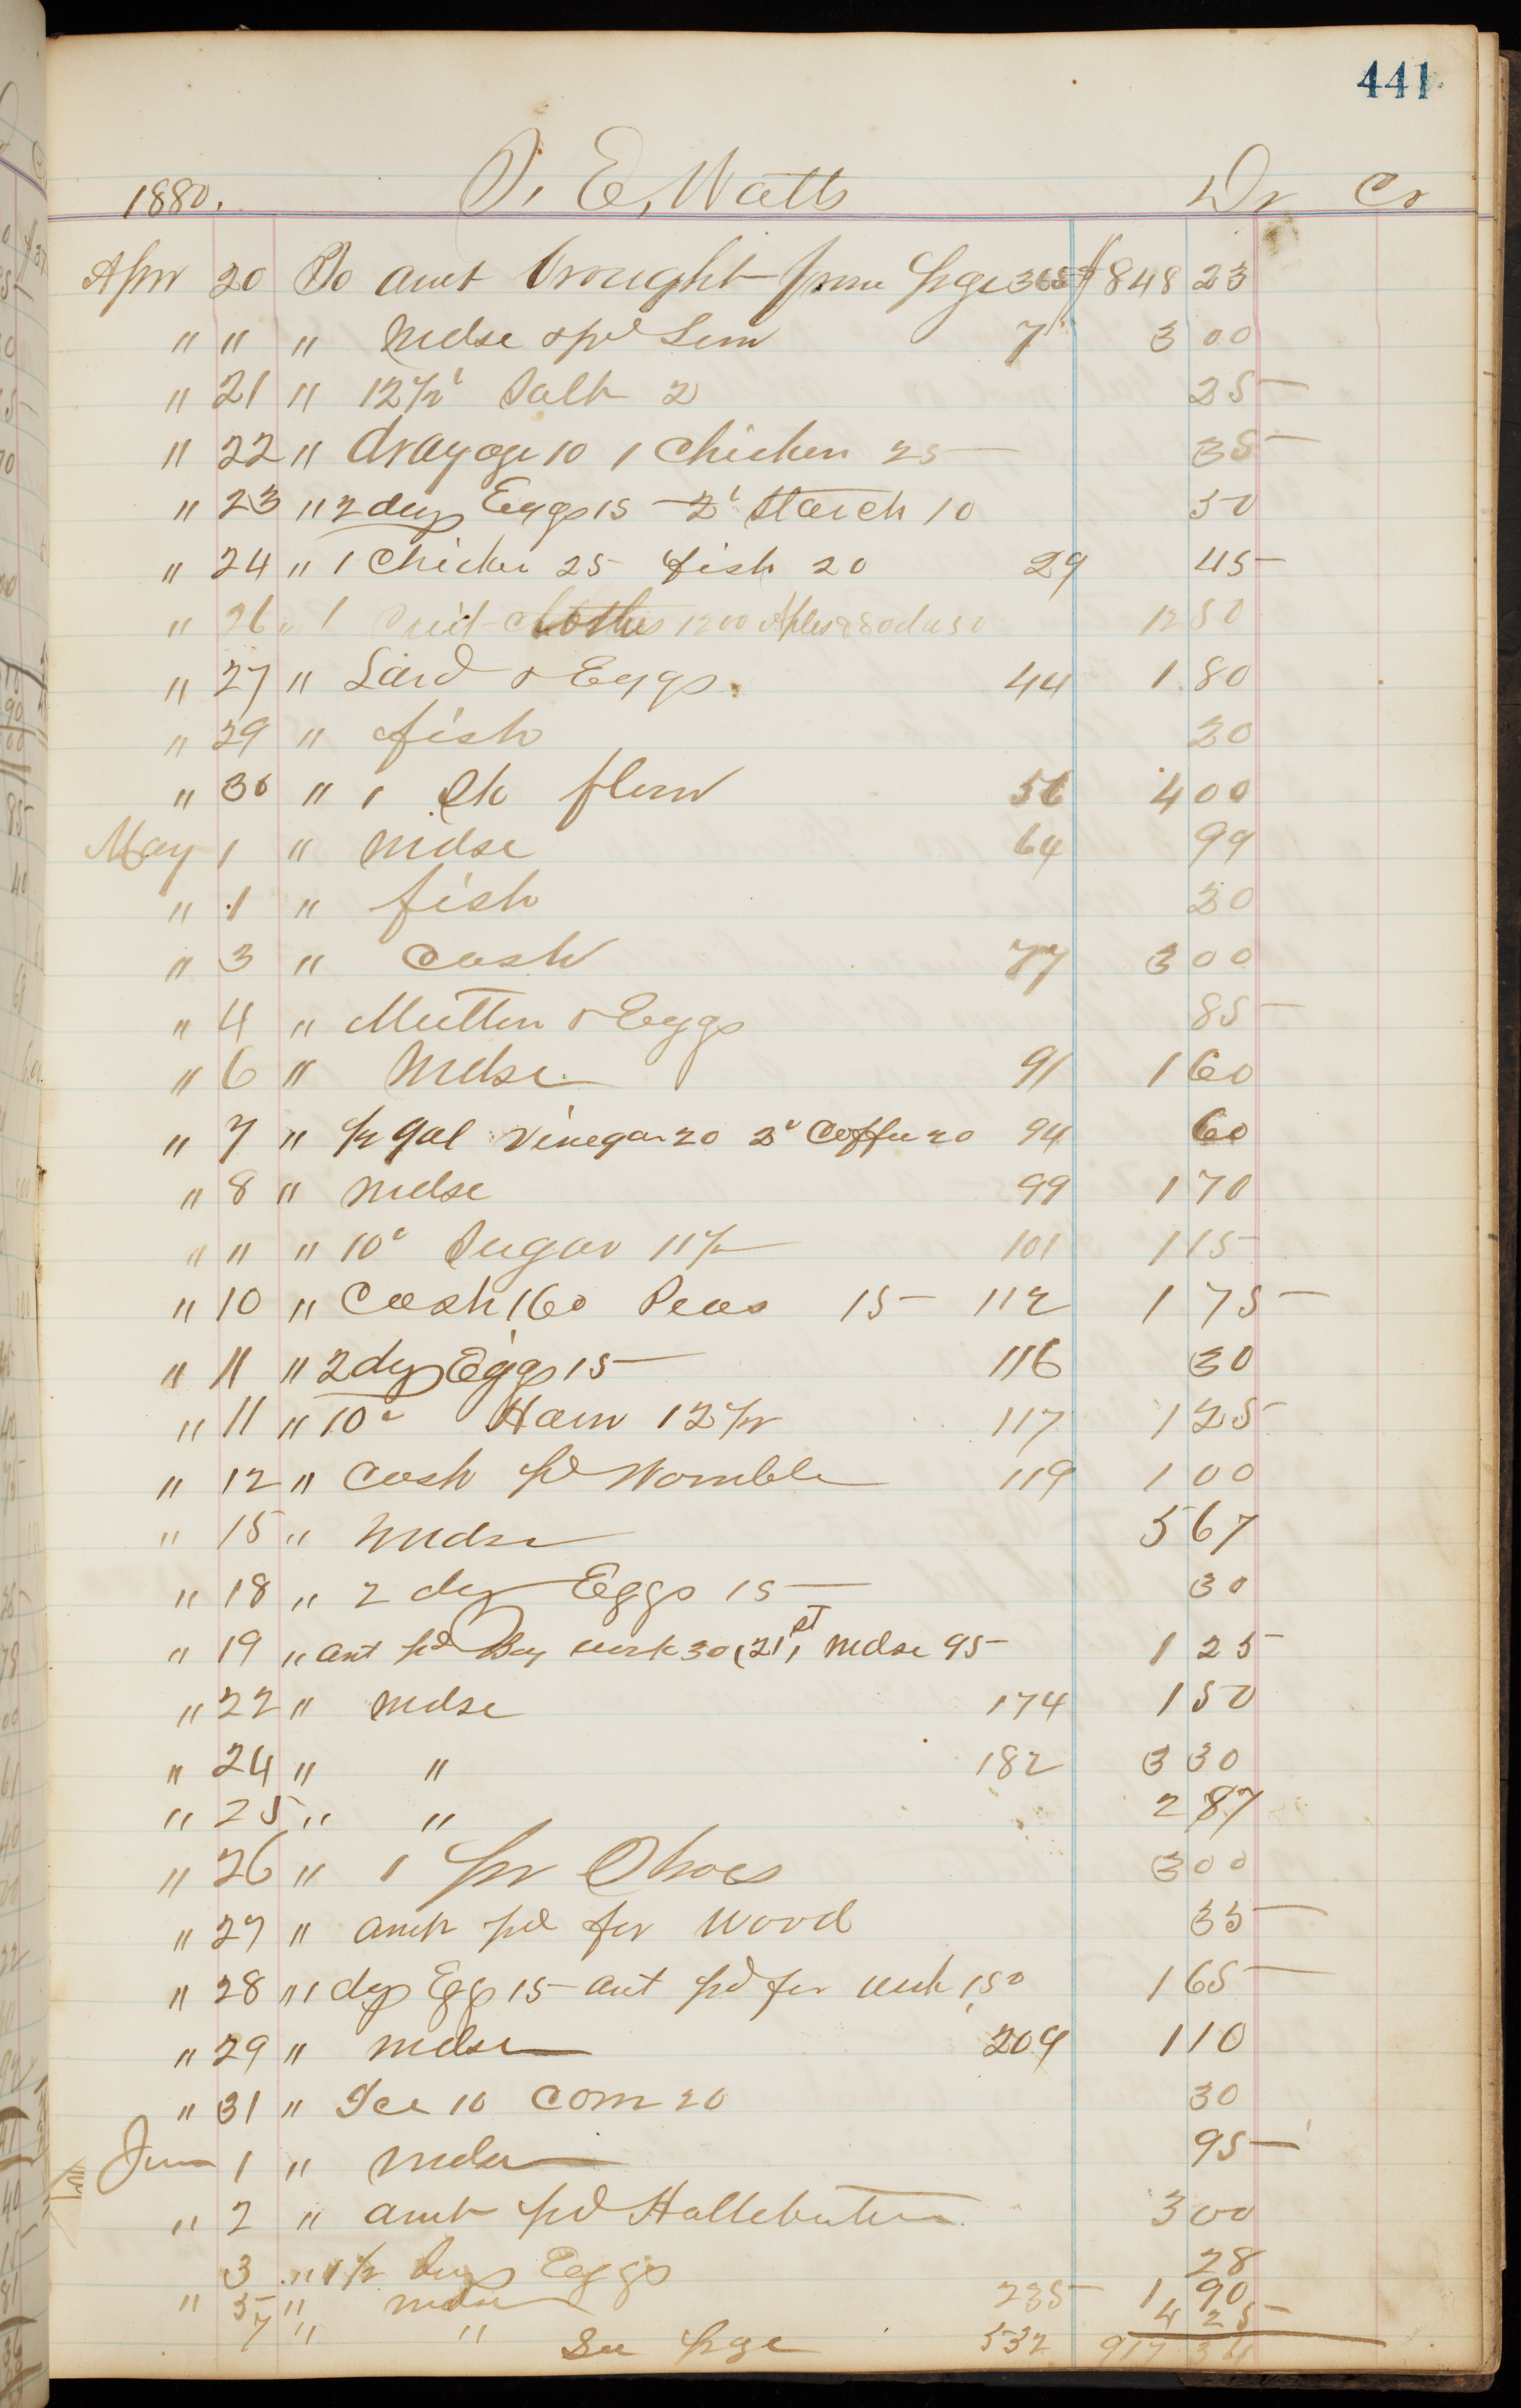 441
1880. T. E. Watts Dr Cr
Apr 20 To amt brought from page 365 $848 23
" " " Mdse & pd Lem 7 3 00
" 21 " 12½ Salt 2 25
" 22 " drayage 10 1 Chicken 25 35
" 23 " 2 doz Eggs 15 2 Starch 10 50
" 24 " 1 Chicken 25 fish 20 29 45
" 26 " 1 Suit Clothes 1200 Aples & Soda 50 12 50
" 27 " Lard & Eggs 44 1 80
" 29 " fish 20
" 30 " 1 Sk flour 56 4 00
May 1 " Mdse 64 99
" 1 " fish 20
" 3 " Cash 77 3 00
" 4 " Mutton & Eggs 85
" 6 " Mdse 91 1 60
" 7 " ½ gal Vinegar 20 2 Coffee 20 94 60
" 8 " Mdse 99 1 70
" " " 10 Sugar 11½ 101 1 15
" 10 " Cash 160 Peas 15 112 1 75
" 11 " 2 doz Eggs 15 116 30
" 11 " 10 Ham 12½ 117 1 25
" 12 " Cash pd Womble 119 1 00
" 15 " Mdse 5 67
" 18 " 2 doz Eggs 15 30
" 19 " amt pd Boy work 30 (21st, Mdse 95 1 25
" 22 " Mdse 174 1 50
" 24 " " 182 3 30
" 25 " " 2 87
" 26 " 1 pr Shoes 3 00
" 27 " amt pd for wood 35
" 28 " 1 doz Egg 15 amt pd for work 150 1 65
" 29 " Mdse 209 1 10
" 31 " Ice 10 Corn 20 30
June 1 " Mdse 95
" 2 " amt pd 3 00
3 " 1½ Doz Eggs 28
" 5 " Mdse 235 1 90
7 " " 4 25
See page 532 917 34